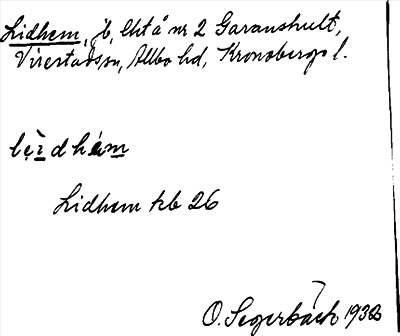 Lidhem, jb, lht å nr 2 Garanshult,
Virestads sn, Allbo hd, Kronobergs l.
Lidhem kb 26
O. Segerbäck 1938